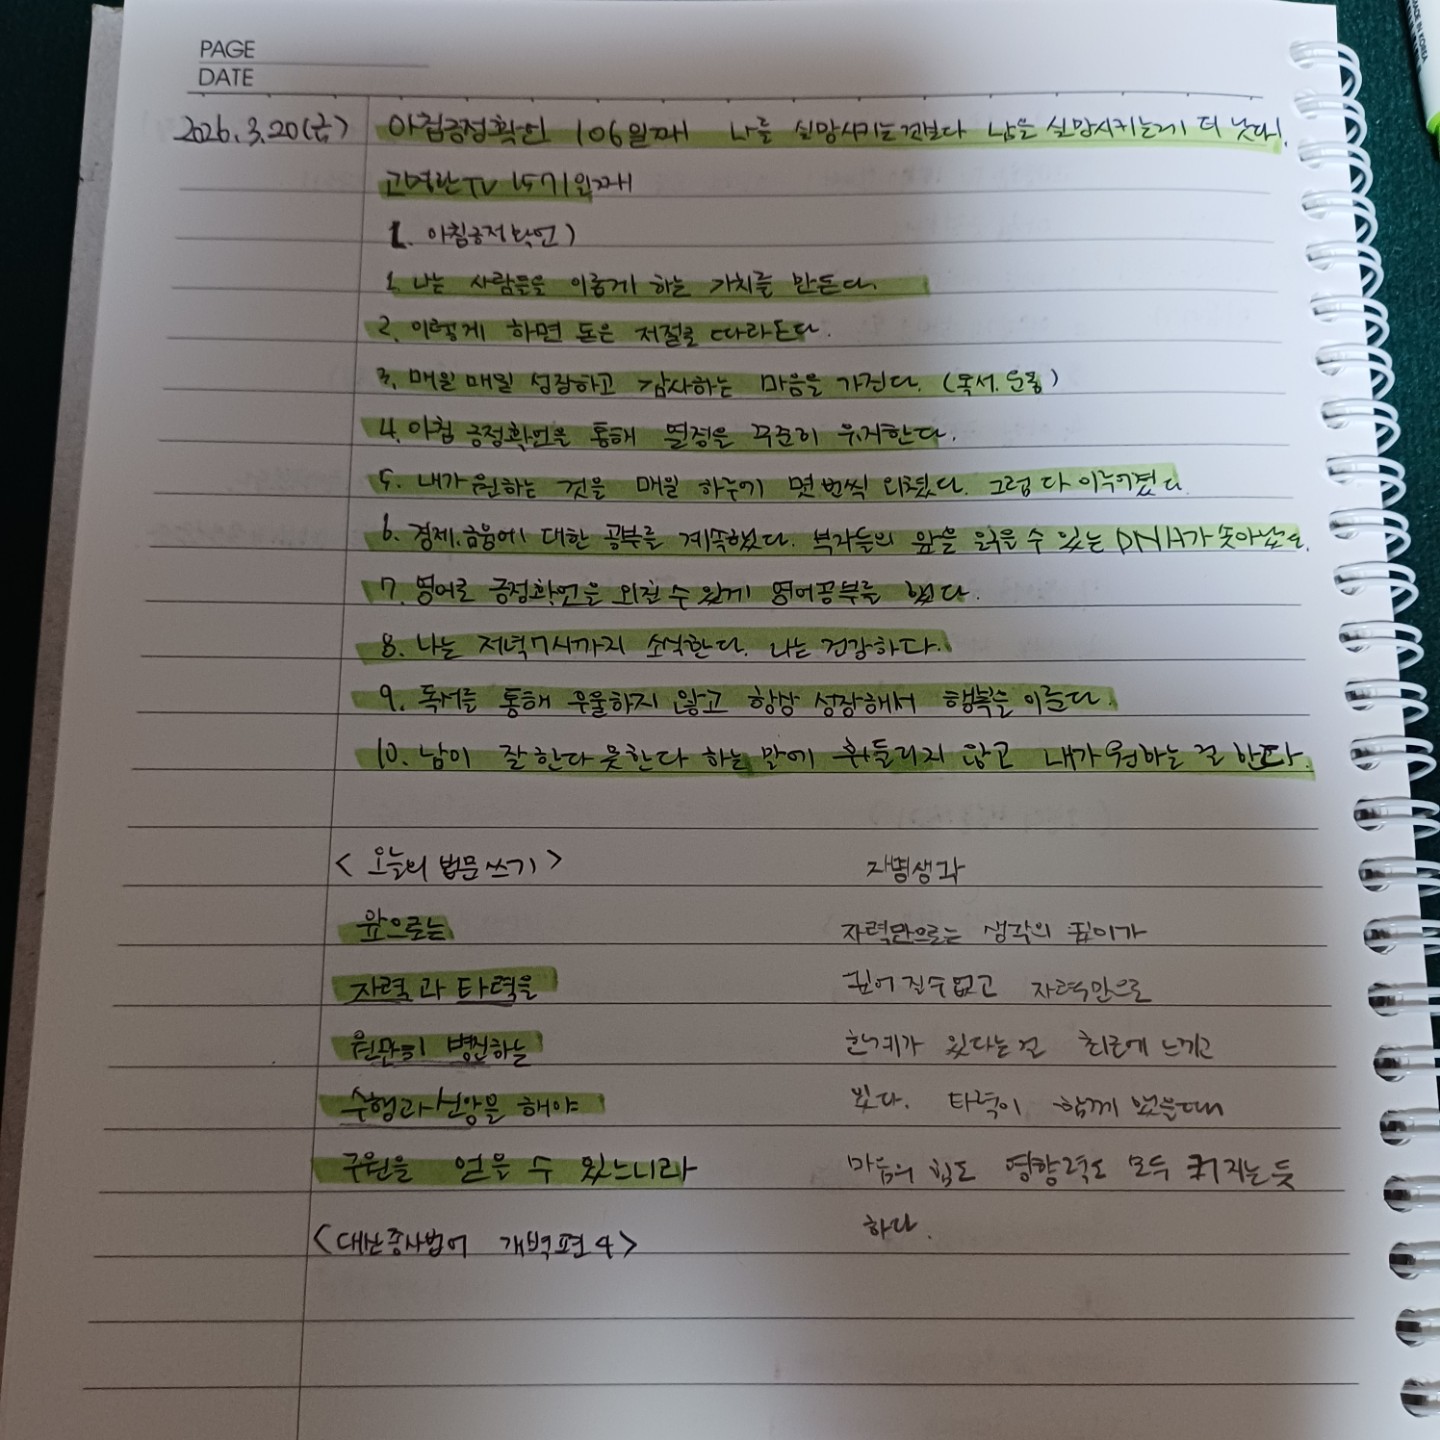 PAGE
DATE
2026.3.20(금) 아침긍정확언 106일째 나를 실망시키는것보다 남을 실망시키는게 더 낫다!
TV 1571일째
1. 아침긍정확언)
1. 나는 사람들을 이롭게 하는 가치를 만든다.
2. 이렇게 하면 돈은 저절로 따라온다.
3. 매일매일 성장하고 감사하는 마음을 가진다. (독서.운동)
4. 아침 긍정확언을 통해 열정을 꾸준히 유지한다.
5. 내가 원하는 것을 매일 하루에 몇번씩 외쳤다. 그럼 다 이루어졌다.
6. 경제.금융에 대한 공부를 계속했다. 부자들의 앞을 읽을 수 있는 DNA가 솟아났다.
7. 영어로 긍정확언을 외칠 수 있게 영어공부를 했다.
8. 나는 저녁7시까지 소식한다. 나는 건강하다.
9. 독서를 통해 우울하지 않고 항상 성장해서 행복을 이룬다.
10. 남이 잘한다 못한다 하는 말에 휘둘리지 않고 내가 원하는 걸 한다.
<오늘의 법문쓰기>
앞으로는
자력과 타력을
원만히 병진하는
수행과 신앙을 해야
구원을 얻을 수 있느니라
<대산종사법어 개벽편 4>
생각
자력만으로는 생각의 깊이가
깊어질수없고 자력만으로
한계가 있다는걸 최근에 느끼고
있다. 타력이 함께 했을때
마음의 힘도 영향력도 모두 커지는듯
하다.
MADE IN KOREA